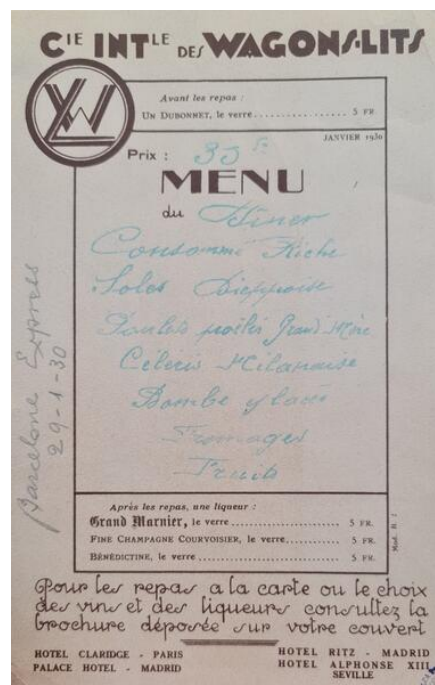 CIE INTLE DES WAGONS-LITS
WL
Avant les repas :
UN DUBONNET, le verre................ 5 FR
JANVIER 1930
Prix : 35 Fr
MENU
du Dîner
Consommé Riche
Soles Dieppoise
Poulets poêlés Grand Mère
Céleris Milanaise
Bombe glacée
Fromages
Fruits
Barcelone Express
29-1-30
Après les repas, une liqueur :
Grand Marnier, le verre........................ 5 FR.
FINE CHAMPAGNE COURVOISIER, le verre............ 5 FR.
BÉNÉDICTINE, le verre.............................. 5 FR.
Pour les repas a la carte ou le choix
des vins et des liqueurs consultez la
brochure déposée sur votre couvert
HOTEL CLARIDGE - PARIS
PALACE HOTEL - MADRID
HOTEL RITZ - MADRID
HOTEL ALPHONSE XIII
SEVILLE